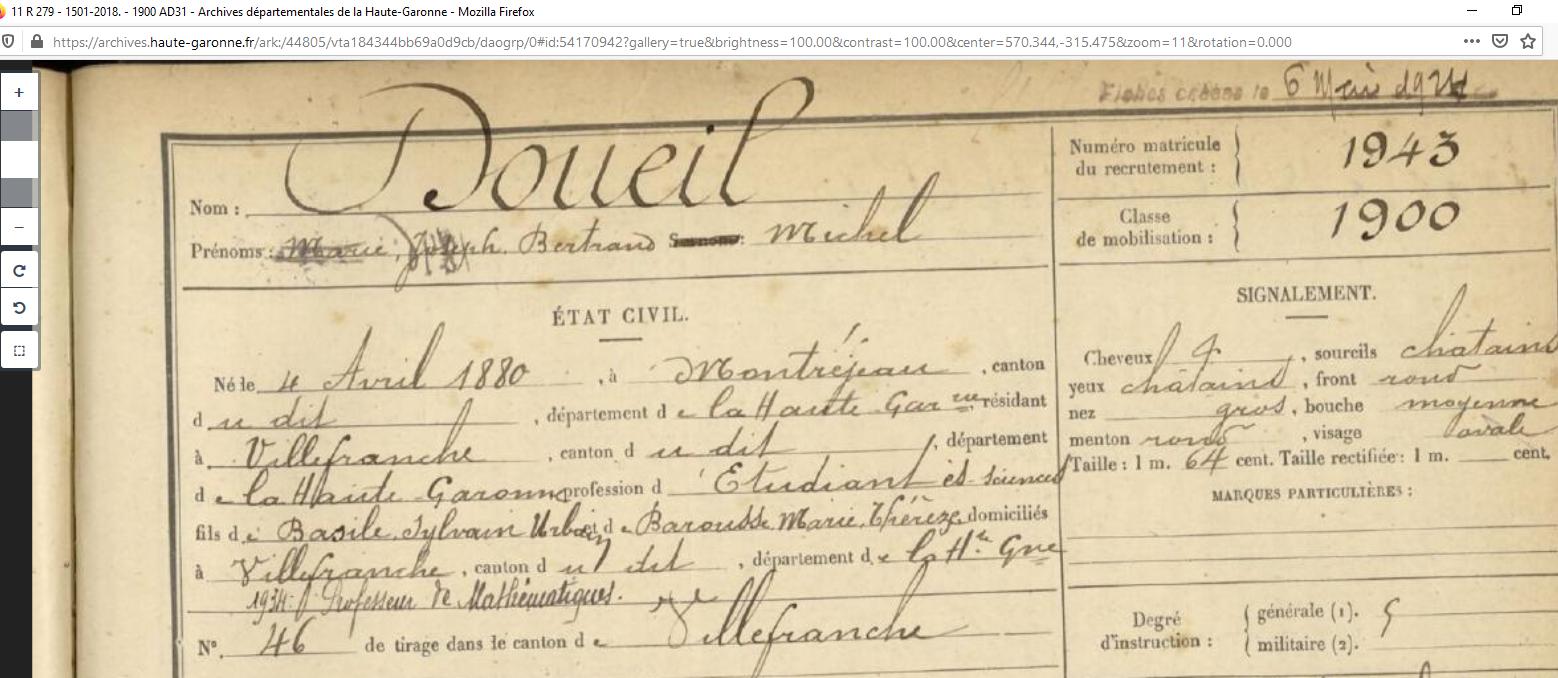 11 R 279 - 1501-2018. - 1900 AD31 - Archives départementales de la Haute-Garonne - Mozilla Firefox
https://archives.haute-garonne.fr/ark:/44805/vta184344bb69a0d9cb/daogrp/0#id:54170942?gallery=true&brightness=100.00&contrast=100.00&center=570.344,-315.475&zoom=11&rotation=0.000
le 6 Mai
Nom : Doueil
Prénoms : Marie, Joseph. Bertrand Surnoms: Michel
Numéro matricule du recrutement : 1943
Classe de mobilisation : 1900
ÉTAT CIVIL.
Né le 4 Avril 1880, à Montréjeau, canton
du dit, département de la Haute Garnne résidant
à Villefranche, canton du dit, département
de la Haute Garonne profession d'Etudiant ès sciences
fils de Basile. Sylvain Urbain et de Barousse Marie. Thérèze. domiciliés
à Villefranche, canton du dit, département de la Hte Gne
1934: Professeur de Mathématiques.
N°. 46 de tirage dans le canton de Villefranche
SIGNALEMENT.
Cheveux, sourcils châtains
yeux châtains, front rond
nez gros, bouche moyenne
menton rond, visage ovale
Taille : 1 m. 64 cent. Taille rectifiée : 1 m. cent.
MARQUES PARTICULIÈRES :
Degré d'instruction :
générale (1). 5
militaire (2).